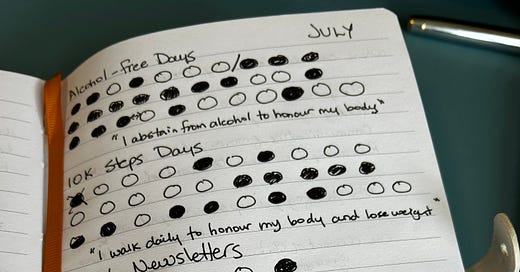 JULY
Alcohol-free Days
"I abstain from alcohol to honour my body"
10K Steps Days
"I walk daily to honour my body and lose weight"
Newsletters